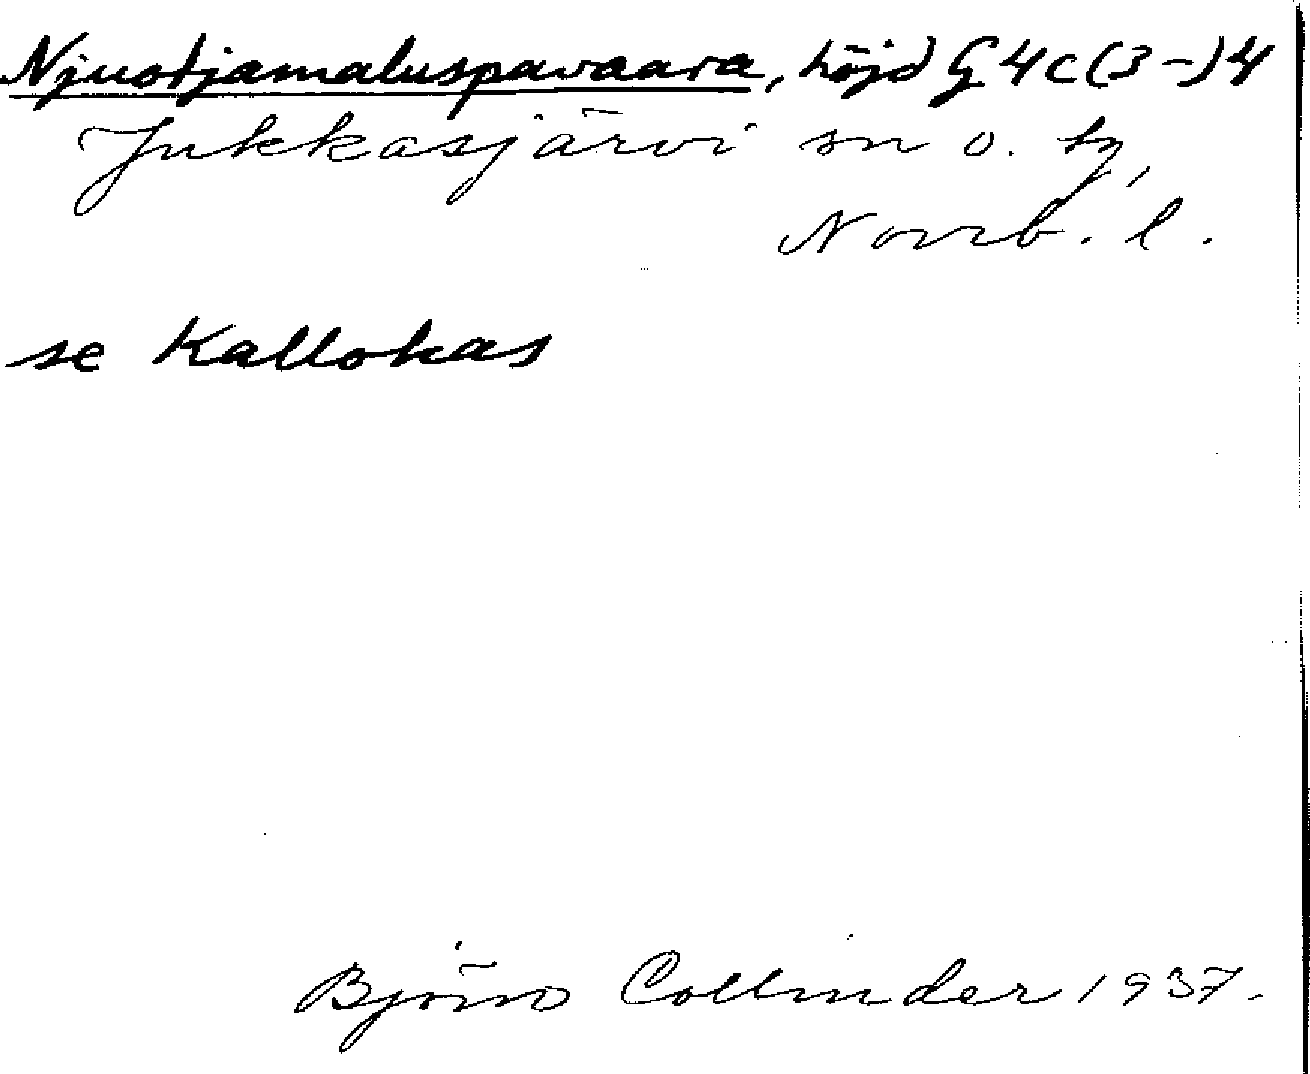 Njuotjamaluspavaara, höjd G4c(3-)4
Jukkasjärvi sn o. tg,
Norrb. l.
se Kallokas
Björn Collinder 1937.